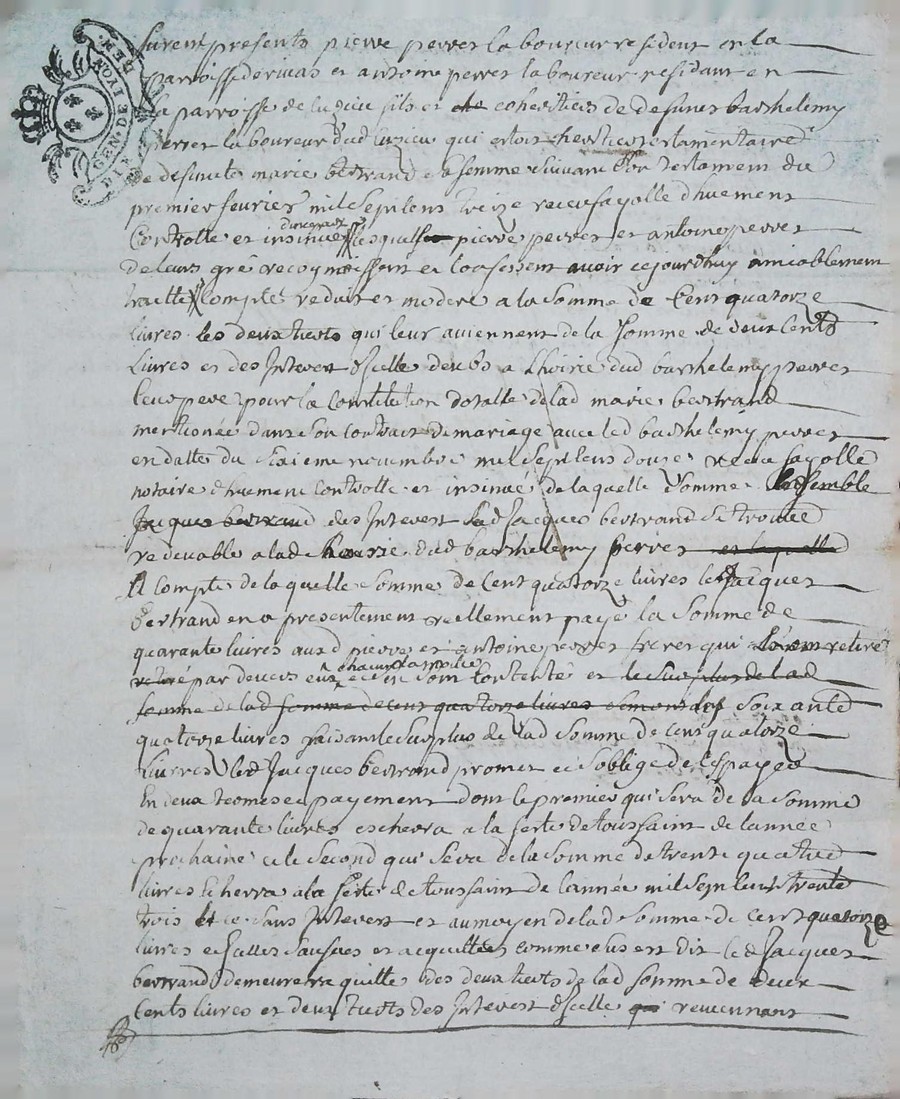 GEN. DE LYON
DEN.
furent presents pierre perret laboureur resident en la
parroisse de rivas et antoine perret laboureur residant en
la parroisse de fils et coheritiers de defunt barthelemy
perret laboureur dud qui estoit heritier testamentaire
de defuncte marie bertrand sa femme suivant son testament du
premier fevrier mil sept cens treize receu fayolle
Controllé et insinué lesquels pierre perret et antoine perret
de leurs gré recognoissent et confessent avoir cejourdhuy amiablement
traitté compté reduit et moderé a la somme de Cent quatorze
livres les deux tierts qui leur aviennent de la somme de deux Cents
Livres et des Interest dicelle deubs a Lhoirie dud barthelemy perret
leur pere pour la Constitution dotalle de lad marie bertrand
mentionée dans son contract de mariage avec led barthelemy perret
en datte du sixieme novembre mil sept cens douze receu fayolle
notaire controllé et insinué de laquelle somme Ensemble
Jacques bertrand des Interest led Jacques bertrand se trouve
redevable a lad hoirie dud barthelemy perret et laquelle
A compte de laquelle somme de Cent quatorze livres led Jacques
Bertrand en a presentement reellement payé la somme de
quarante livres aud pierre et antoine perret frerer qui retiré
chacun la moitié
retiré par devers eux et sen sont contenté et le surplus de lad
somme de lad somme de cent quatorze livres soixante
quatorze livres faisant le surplus de lad somme de cent quatorze
Livres led Jacques bertrand promet et soblige de les payer
En deux termes et payement dont le premier qui sera de la somme
de quarante livres escherra a la feste de toussaint de lannée
prochaine et le second qui sera de la somme de trente quatre
livres Escherra a la feste de toussaint de lannée mil sept cens trente
trois et ce sans Interest et au moyen de lad somme de Cent quatorze
livres et acquittées comme dessus est dit led Jacques
bertrand demeurera quitte des deux tierts de lad somme de deux
Cents livres et deux tierts des Interest dicelle qui revennant